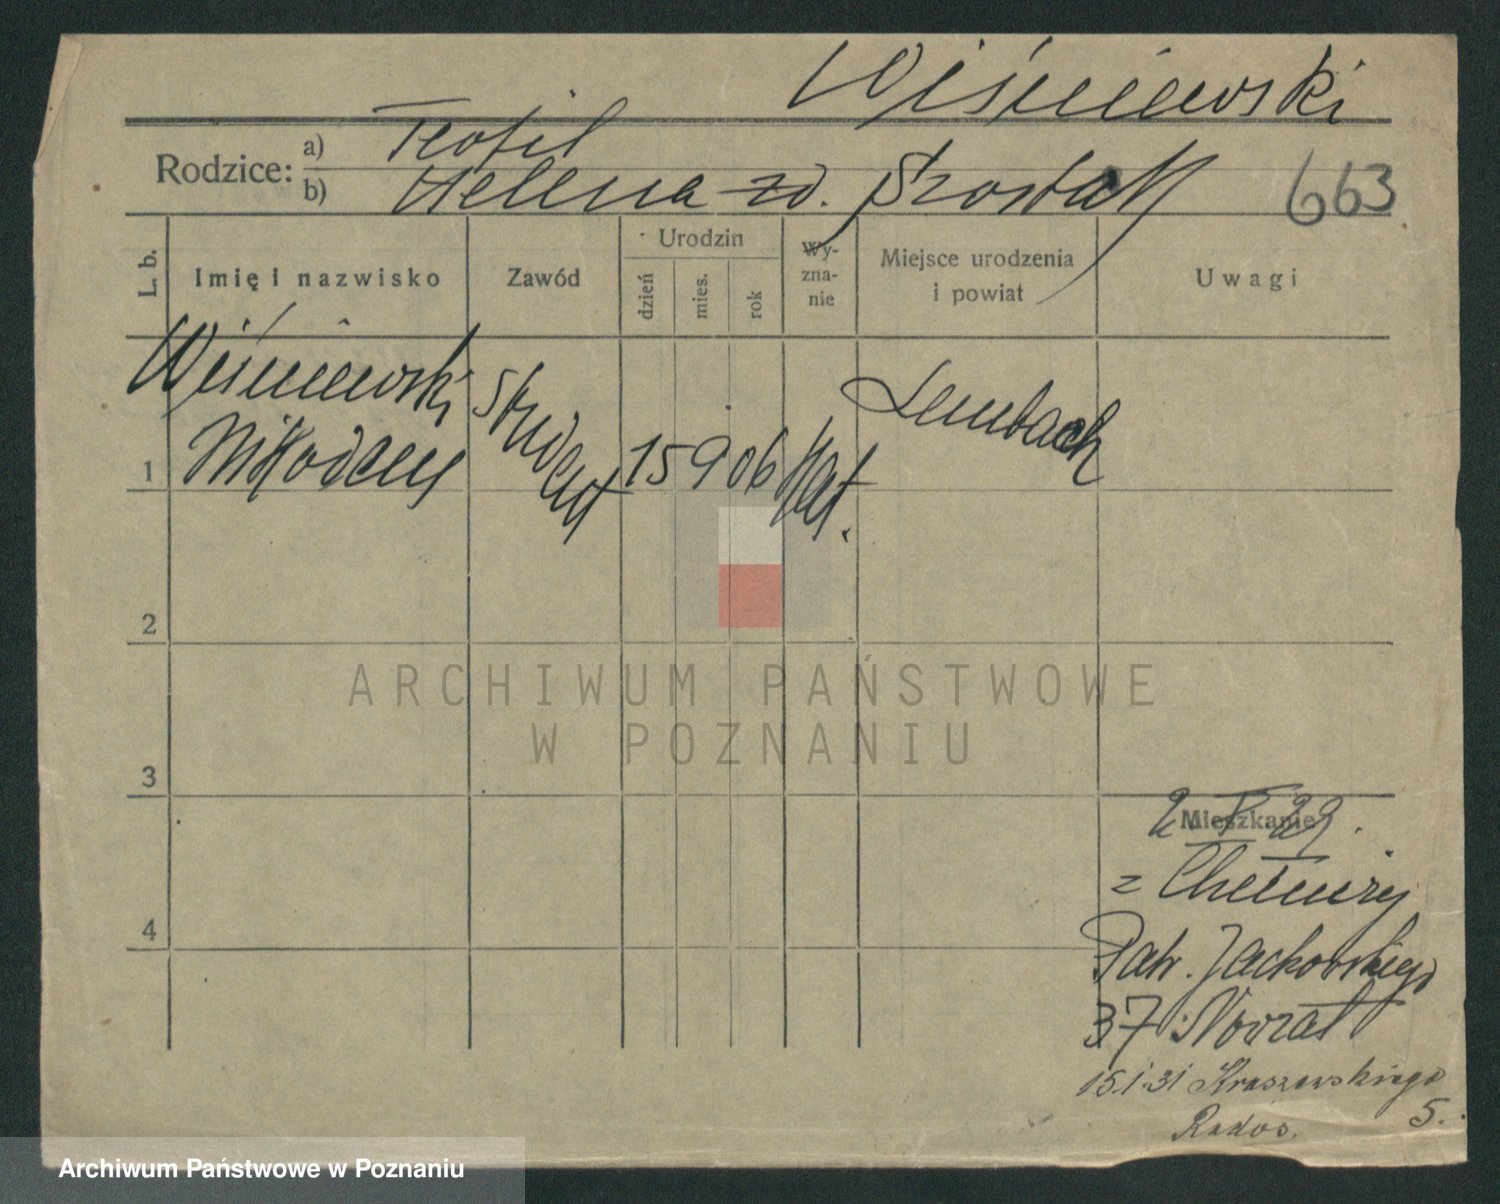 Wiśniewski
Rodzice: a) Teofil
b) Helena zd. Szostak
663
L. b.
Imię i nazwisko
Zawód
Urodzin
dzień
mies.
rok
Wy-
zna-
nie
Miejsce urodzenia
i powiat
Uwagi
1
Wiśniewski
Nikodem
Student
15 9 06
Kat.
Lembach
2
3
4
ARCHIWUM PAŃSTWOWE
W POZNANIU
Mieszkanie
z Chełmży
Patr. Jackowskiego
37
15.1.31 Kraszewskiego
5.
Archiwum Państwowe w Poznaniu